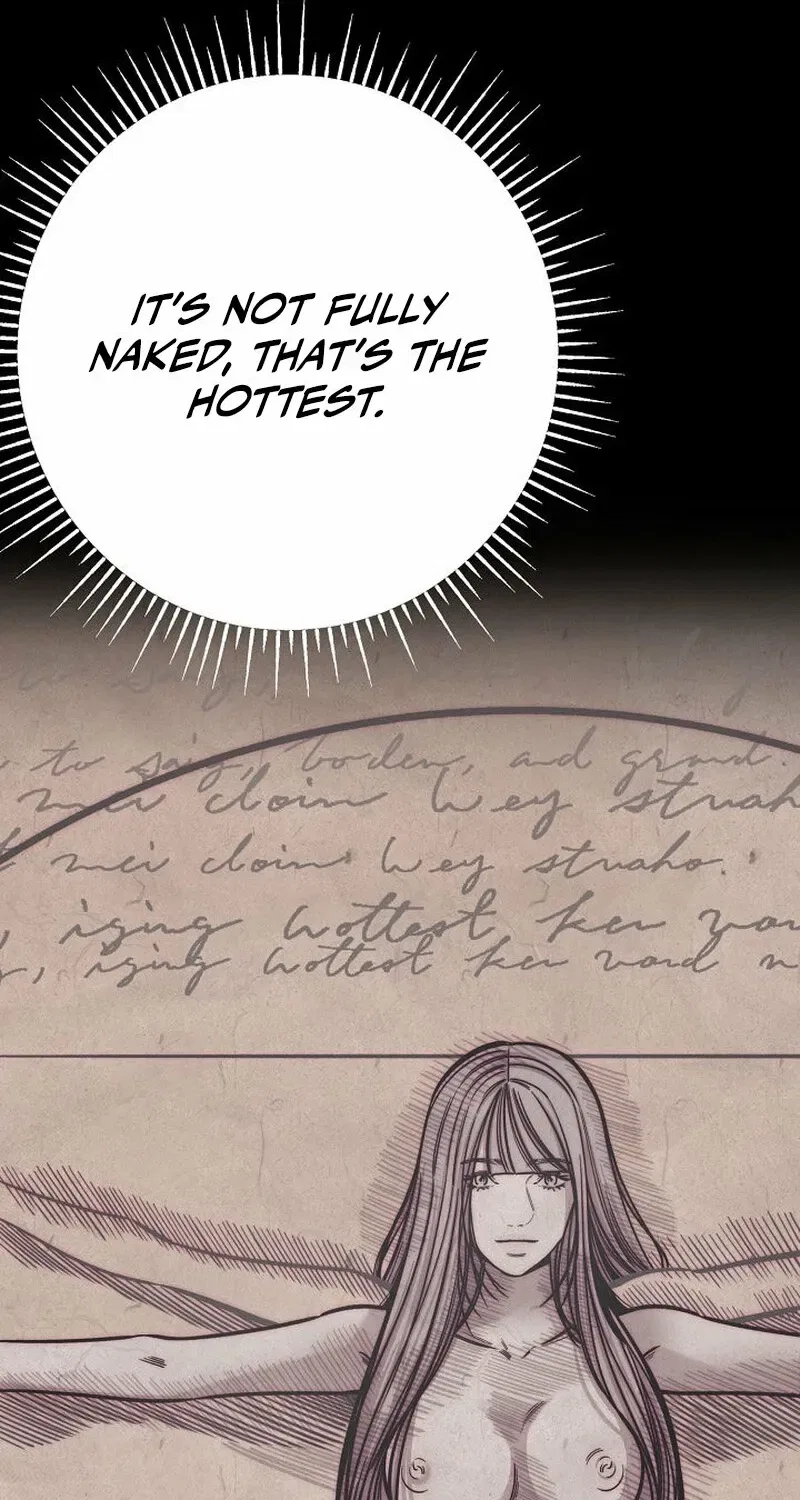 IT'S NOT FULLY
NAKED, THAT'S THE
HOTTEST.
to say, boden, and grand.
mei cloin wey struah
mei cloin wey struaho.
, iging hottest ken vard
, iging hottest ken vard n